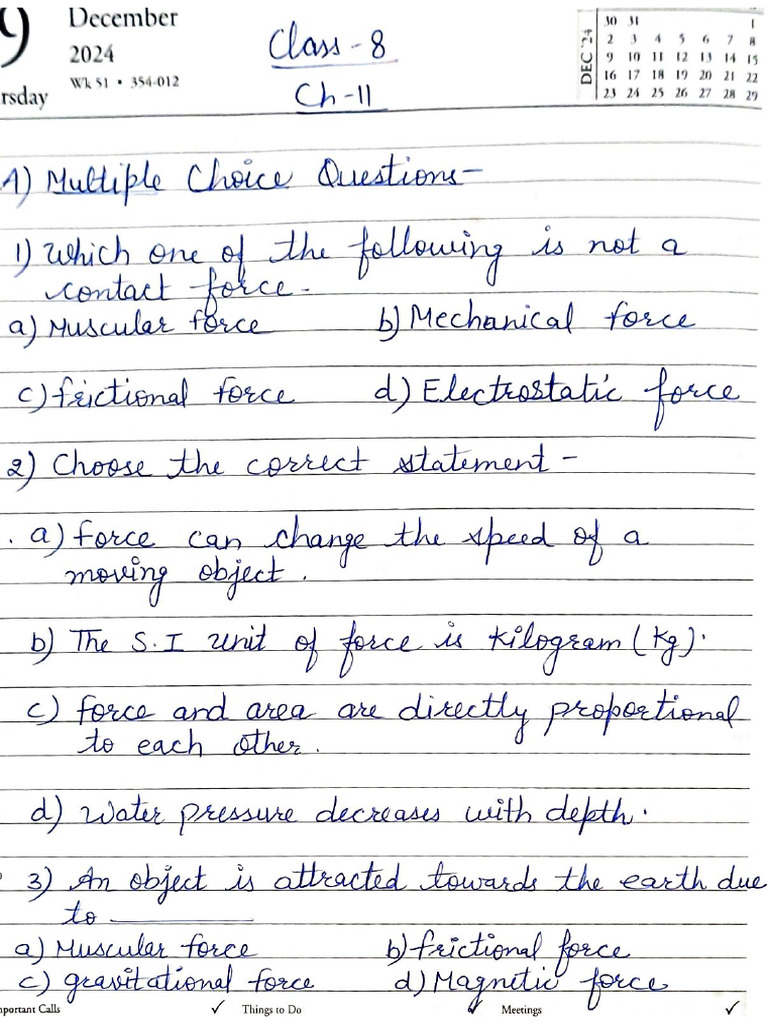 December
2024
Wk 51 • 354-012
rsday
Class - 8
Ch-11
DEC '24
30 31 1
2 3 4 5 6 7 8
9 10 11 12 13 14 15
16 17 18 19 20 21 22
23 24 25 26 27 28 29
A) Multiple Choice Questions-
1) Which one of the following is not a
contact force-
a) Muscular force b) Mechanical force
c) frictional force d) Electrostatic force
2) Choose the correct statement-
a) force can change the speed of a
moving object.
b) The S.I unit of force is kilogram (kg).
c) force and area are directly proportional
to each other.
d) Water pressure decreases with depth.
3) An object is attracted towards the earth due
to ________
a) Muscular force b) frictional force
c) gravitational force d) Magnetic force
portant Calls ✓ Things to Do ✓ Meetings ✓